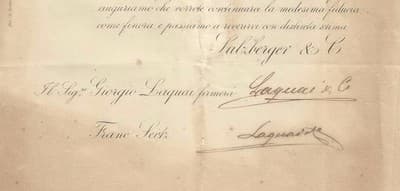 auguriamo che vorrete continuarci la medesima fiducia
come finora e passiamo a riverirvi con distinta stima
Sulzberger & Cº
Il Sigr. Giorgio Laquai firmerà Laquai & C
Franc